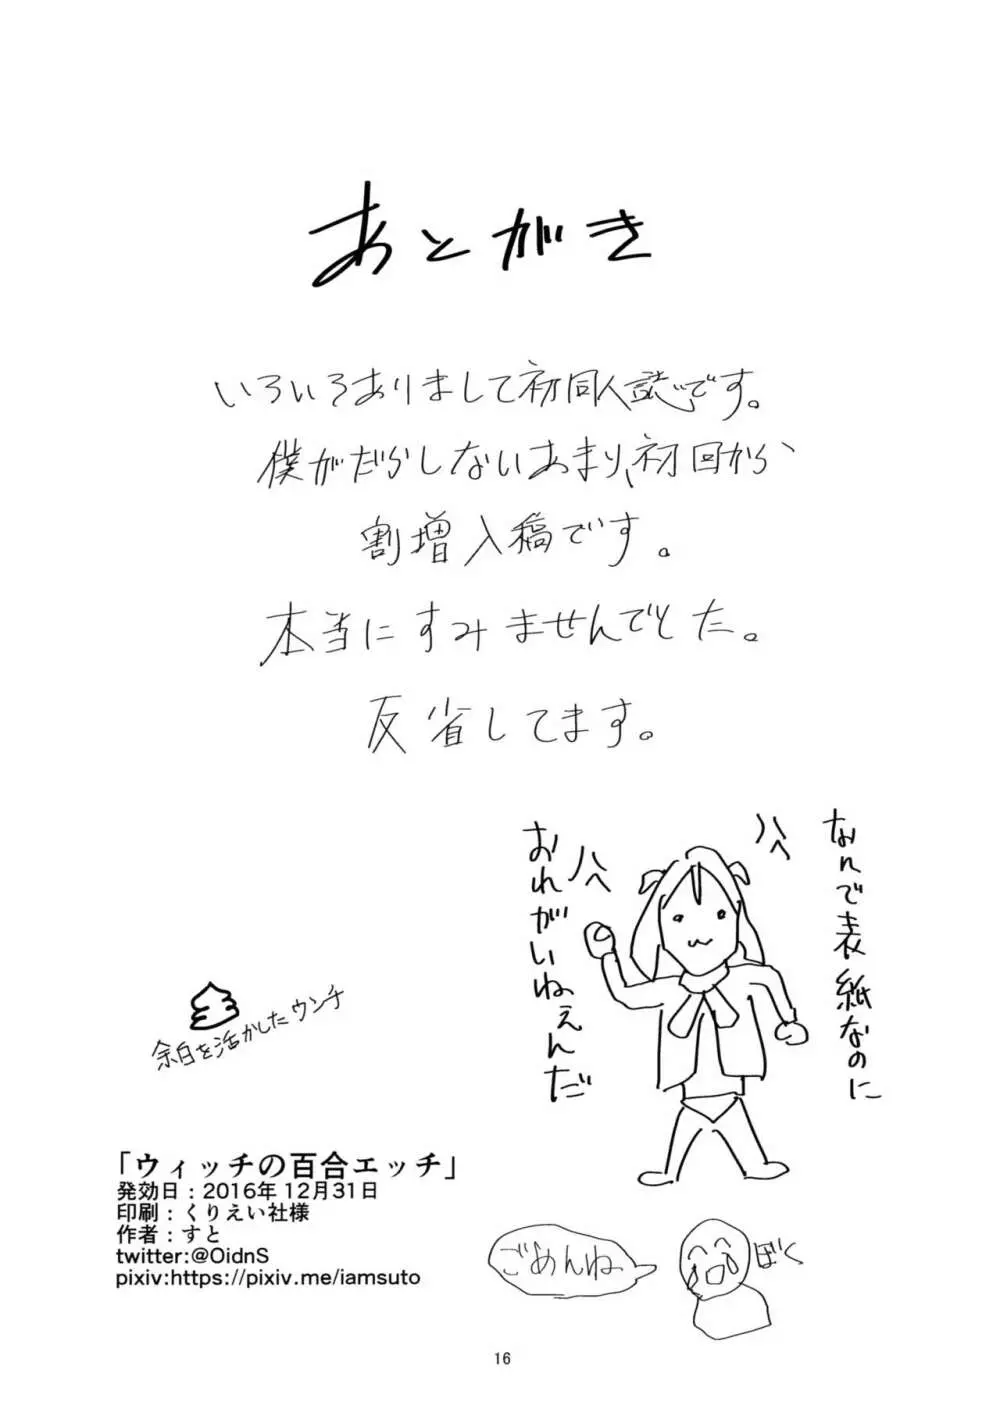 あとがき
いろいろありまして初同人誌です。
僕がだらしないあまり、初回から
割増入稿です。
本当にすみませんでした。
反省してます。
なんで表紙なのに
おれがいねぇんだ
余白を活かしたウンチ
「ウィッチの百合エッチ」
発効日：2016年 12月31日
印刷：くりえい社様
作者：すと
twitter:@OidnS
pixiv:https://pixiv.me/iamsuto
ごめんね
ぼく
16